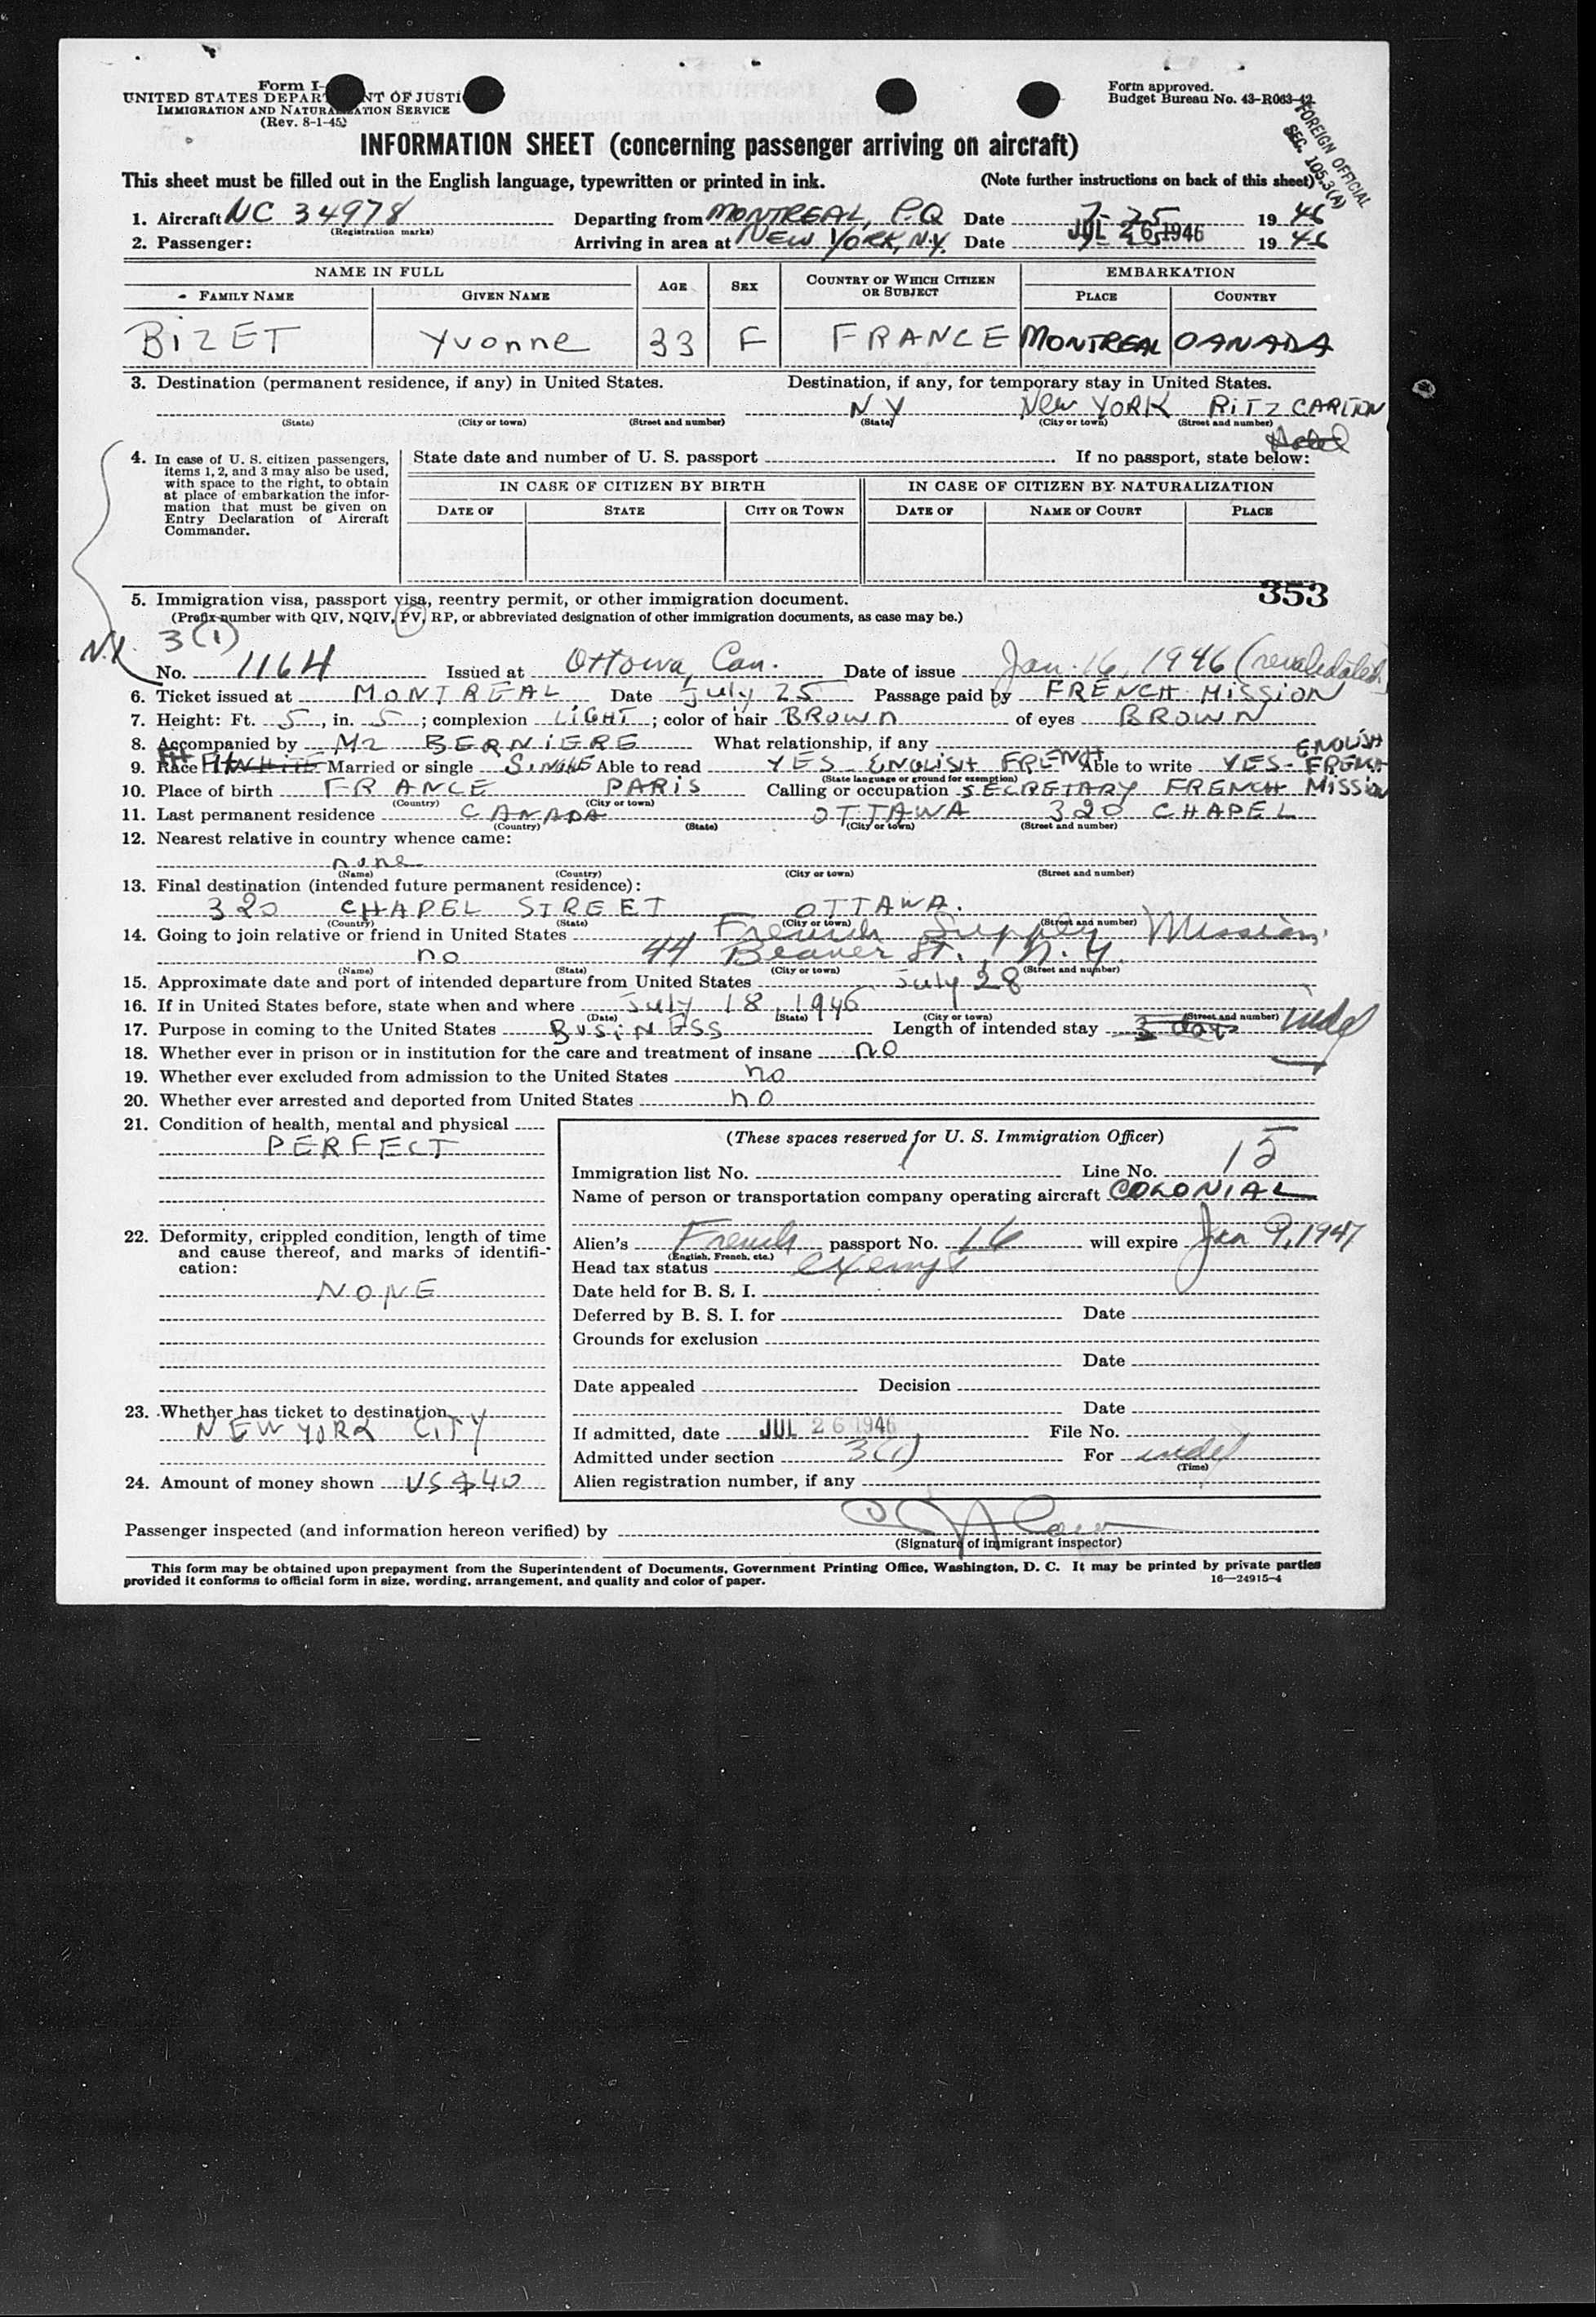 Form I-
UNITED STATES DEPARTMENT OF JUSTI
IMMIGRATION AND NATURALIZATION SERVICE
(Rev. 8-1-45)
Form approved.
Budget Bureau No. 43-R063-42
FOREIGN OFFICIAL
SEC. 105.3(A)
INFORMATION SHEET (concerning passenger arriving on aircraft)
This sheet must be filled out in the English language, typewritten or printed in ink. (Note further instructions on back of this sheet)
1. Aircraft NC 34978 Departing from MONTREAL, P.Q Date 7-25 1946
(Registration marks)
2. Passenger: Arriving in area at NEW YORK, N.Y. Date JUL 26 1946 1946
NAME IN FULL AGE SEX COUNTRY OF WHICH CITIZEN OR SUBJECT EMBARKATION
FAMILY NAME GIVEN NAME PLACE COUNTRY
BIZET Yvonne 33 F FRANCE MONTREAL CANADA
3. Destination (permanent residence, if any) in United States. Destination, if any, for temporary stay in United States.
NY New YORK RITZ CARLTON
(State) (City or town) (Street and number) (State) (City or town) (Street and number)
Hotel
4. In case of U. S. citizen passengers, items 1, 2, and 3 may also be used, with space to the right, to obtain at place of embarkation the information that must be given on Entry Declaration of Aircraft Commander.
State date and number of U. S. passport If no passport, state below:
IN CASE OF CITIZEN BY BIRTH IN CASE OF CITIZEN BY NATURALIZATION
DATE OF STATE CITY OR TOWN DATE OF NAME OF COURT PLACE
353
5. Immigration visa, passport visa, reentry permit, or other immigration document.
(Prefix number with QIV, NQIV, PV, RP, or abbreviated designation of other immigration documents, as case may be.)
3(1)
N.Y.
No. 1164 Issued at Ottowa, Can. Date of issue Jan. 16, 1946 (revalidated)
6. Ticket issued at MONTREAL Date July 25 Passage paid by FRENCH MISSION
7. Height: Ft. 5, in. 5; complexion LIGHT; color of hair BROWN of eyes BROWN
8. Accompanied by Mr BERNIERE What relationship, if any
ENGLISH
9. Race WHITE Married or single SINGLE Able to read YES - ENGLISH FRENCH Able to write YES - FRENCH
(State language or ground for exemption)
10. Place of birth FRANCE PARIS Calling or occupation SECRETARY FRENCH MISSION
(Country) (City or town)
11. Last permanent residence CANADA OTTAWA 320 CHAPEL
(Country) (State) (City or town) (Street and number)
12. Nearest relative in country whence came:
none
(Name) (Country) (City or town) (Street and number)
13. Final destination (intended future permanent residence):
320 CHAPEL STREET OTTAWA.
(Country) (State) (City or town) (Street and number)
14. Going to join relative or friend in United States French Supply Mission
no 44 Beaver St., N.Y.
(Name) (State) (City or town) (Street and number)
15. Approximate date and port of intended departure from United States July 28
16. If in United States before, state when and where July 18, 1946
(Date) (State) (City or town) (Street and number)
17. Purpose in coming to the United States BUSINESS Length of intended stay 3 days indef
18. Whether ever in prison or in institution for the care and treatment of insane no
19. Whether ever excluded from admission to the United States no
20. Whether ever arrested and deported from United States no
21. Condition of health, mental and physical
PERFECT
22. Deformity, crippled condition, length of time and cause thereof, and marks of identification:
NONE
23. Whether has ticket to destination
NEW YORK CITY
24. Amount of money shown US $40
(These spaces reserved for U. S. Immigration Officer)
Immigration list No. Line No. 15
Name of person or transportation company operating aircraft COLONIAL
Alien's French passport No. 16 will expire Jan 9, 1947
(English, French, etc.)
Head tax status exempt
Date held for B. S. I.
Deferred by B. S. I. for Date
Grounds for exclusion
Date
Date appealed Decision
Date
If admitted, date JUL 26 1946, File No.
Admitted under section 3(1) For indef
(Time)
Alien registration number, if any
Passenger inspected (and information hereon verified) by
(Signature of immigrant inspector)
This form may be obtained upon prepayment from the Superintendent of Documents, Government Printing Office, Washington, D. C. It may be printed by private parties
provided it conforms to official form in size, wording, arrangement, and quality and color of paper. 16—24915-4